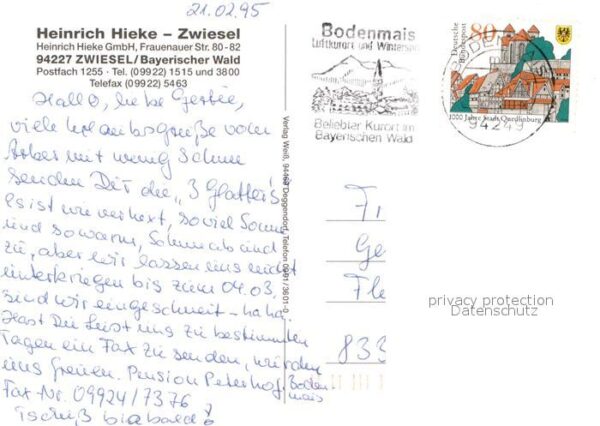 21.02.95
Heinrich Hieke – Zwiesel
Heinrich Hieke GmbH, Frauenauer Str. 80-82
94227 ZWIESEL/Bayerischer Wald
Postfach 1255 · Tel. (09922) 1515 und 3800
Telefax (09922) 5463
Hallo, liebe
viele Urlaubsgrüße vom
Arber mit wenig Schnee
senden Dir die „3 Glatter's
Es ist wie verhext, so viel Sonne
und so warm, Schnee ab und
zu, aber wir lassen uns nicht
unterkriegen bis zum 04.03.
sind wir eingeschneit - ha ha
Hast Du Lust uns zu bestimmten
Tagen ein Fax zu senden, würden
uns freuen. Pension Peterhof, Boden
mais
Fax-Nr. 09924/7376
Tschüß bis bald
Verlag Weiß, 94469 Deggendorf, Telefon 0991/3601-0
Bodenmais
Luftkurort und Wintersport
Beliebter Kurort im
Bayerischen Wald
Deutsche
Bundespost
80
BODENMAIS
94249
1000 Jahre Stadt Quedlinburg
Fr
Ge
Fle
833
privacy protection
Datenschutz